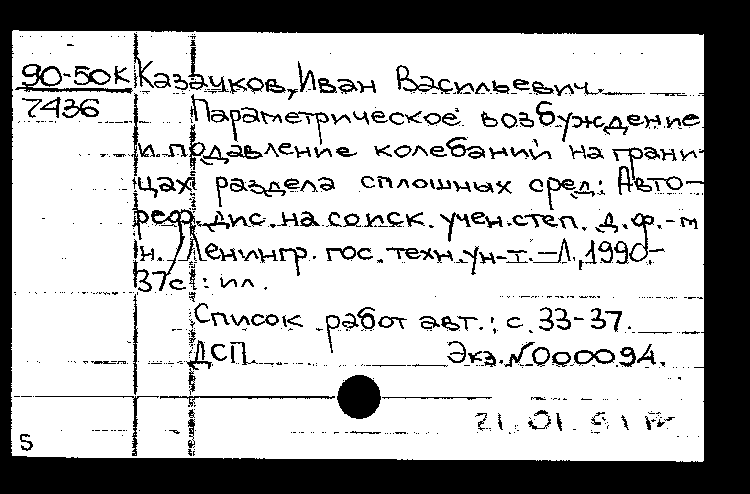 90-50к Казачков, Иван Васильевич.
7436 Параметрическое возбуждение
и подавление колебаний на грани-
цах раздела сплошных сред: Авто-
реф. дис. на соиск. учен. степ. д. ф.-м
н. / Ленингр. гос. техн. ун-т. — Л., 1990.-
37с. : ил.
Список работ авт.: с. 33-37.
ДСП. Экз. №000094.
21.01.91
5